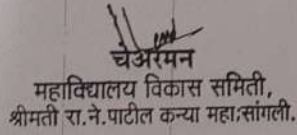 चेअरमन
महाविद्यालय विकास समिती,
श्रीमती रा.ने.पाटील कन्या महा.सांगली.